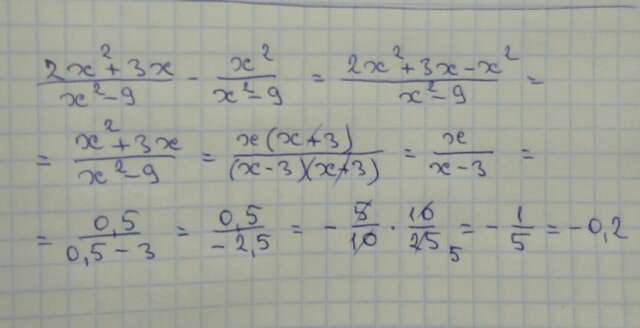 (2x²+3x)/(x²-9) - x²/(x²-9) = (2x²+3x-x²)/(x²-9) =
= (x²+3x)/(x²-9) = x(x+3)/((x-3)(x+3)) = x/(x-3) =
= 0,5/(0,5-3) = 0,5/(-2,5) = -5/10 · 10/25 5 = -1/5 = -0,2